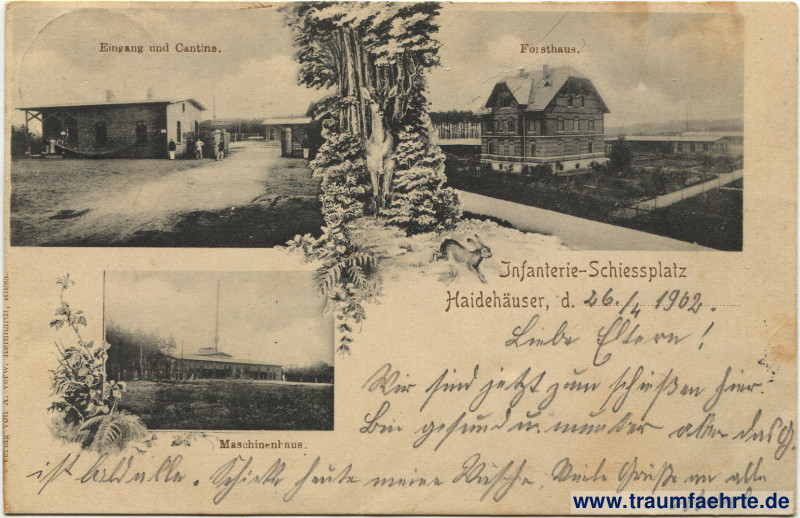 Eingang und Cantine.
Forsthaus.
Infanterie-Schiessplatz
Haidehäuser, d. 26./4 1902.
Liebe Eltern!
Wir sind jetzt zum schießen hier.
Bin gesund u. munter aber das G.
ist bald alle. Schicke heute meine Wäsche. Viele Grüße an alle
Maschinenhaus.
Verlag von A. verw. Reinhardt, Riesa.
www.traumfaehrte.de